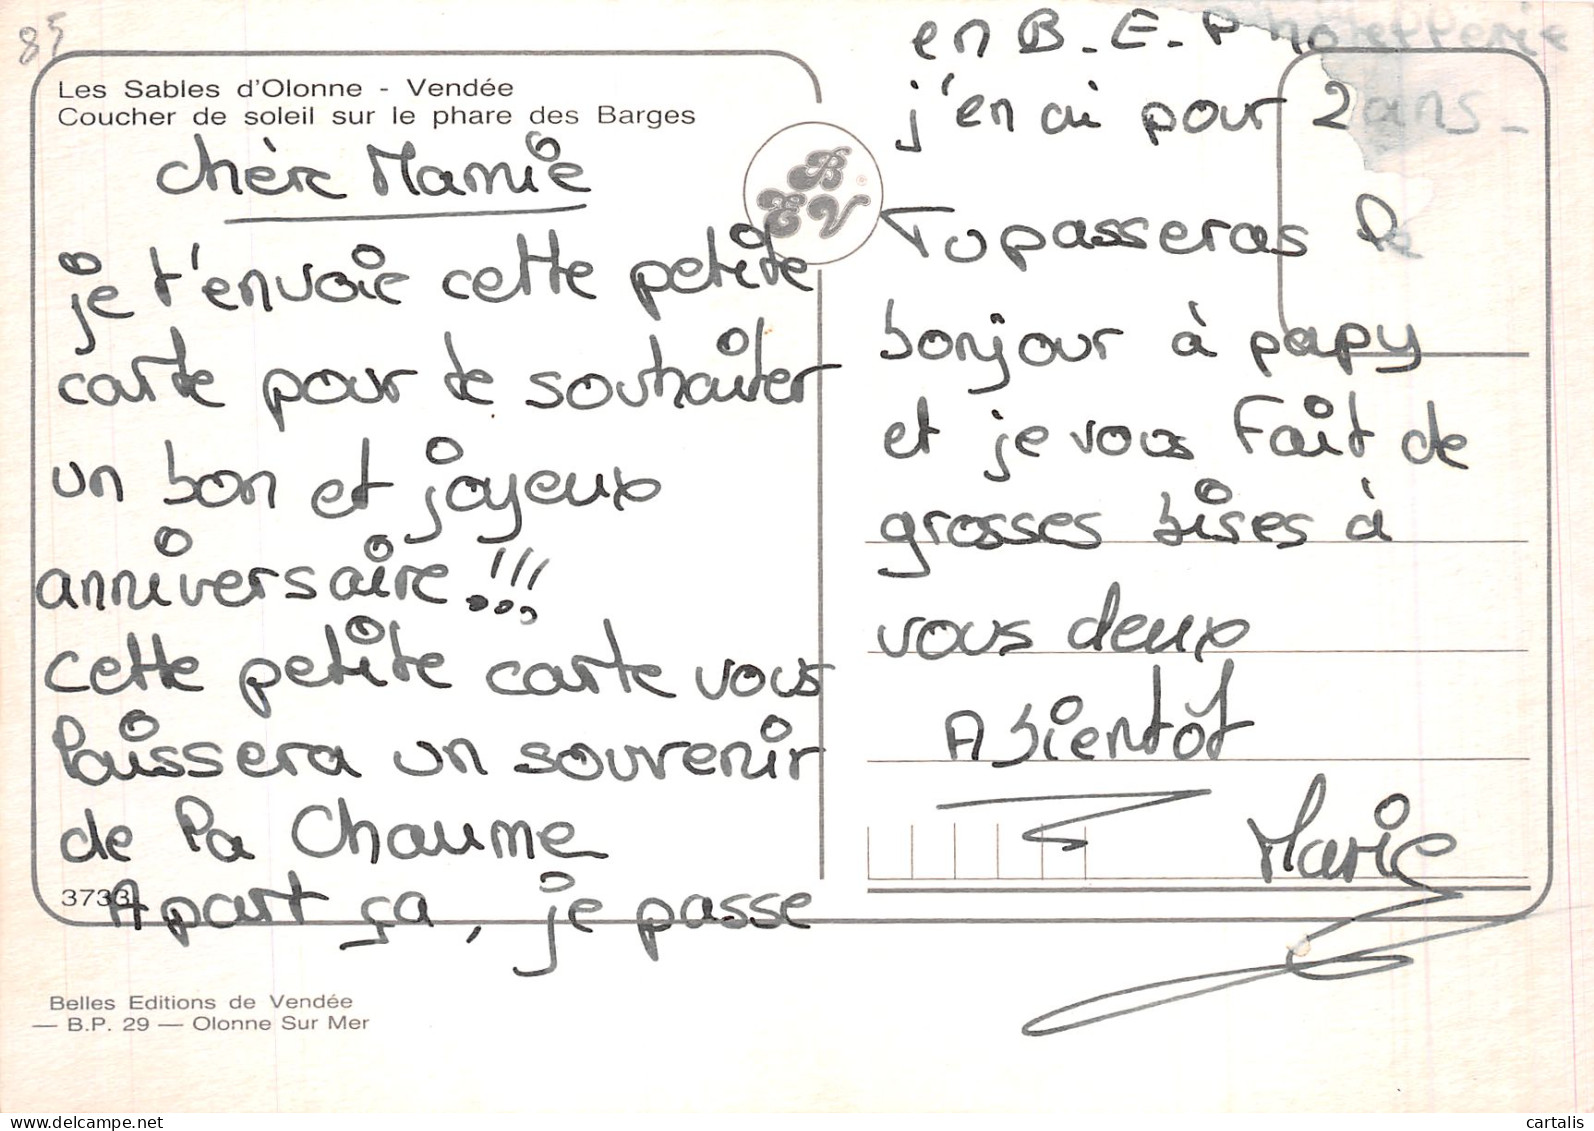 85
Les Sables d'Olonne - Vendée
Coucher de soleil sur le phare des Barges
chère Mamie
je t'envoie cette petite
carte pour te souhaiter
un bon et joyeux
anniversaire !!!
cette petite carte vous
laissera un souvenir
de la Chaume
A part ça, je passe
3733
Belles Editions de Vendée
— B.P. 29 — Olonne Sur Mer
BEV
en B.E.P hôtellerie
j'en ai pour 2 ans.
Tu passeras le
bonjour à papy
et je vous fait de
grosses bises à
vous deux
A bientôt
Marie
cartalis